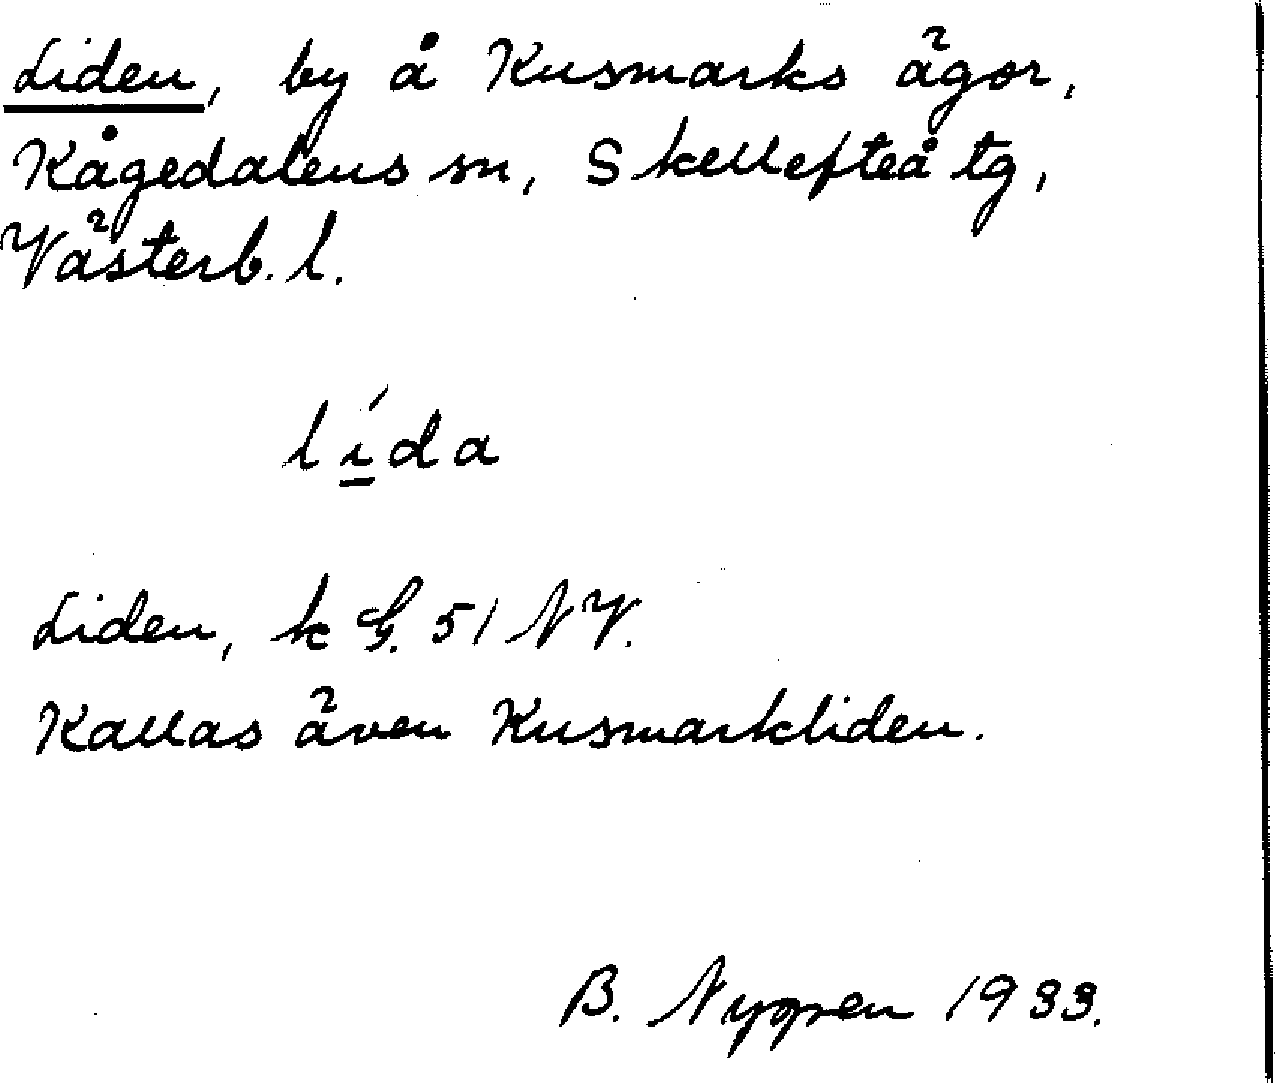 Liden, by å Kusmarks ägor,
Kågedalens sn, Skellefteå tg,
Västerb. l.
lída
Liden, k G. 51 NV.
Kallas även Kusmarkliden.
B. Nygren 1933.